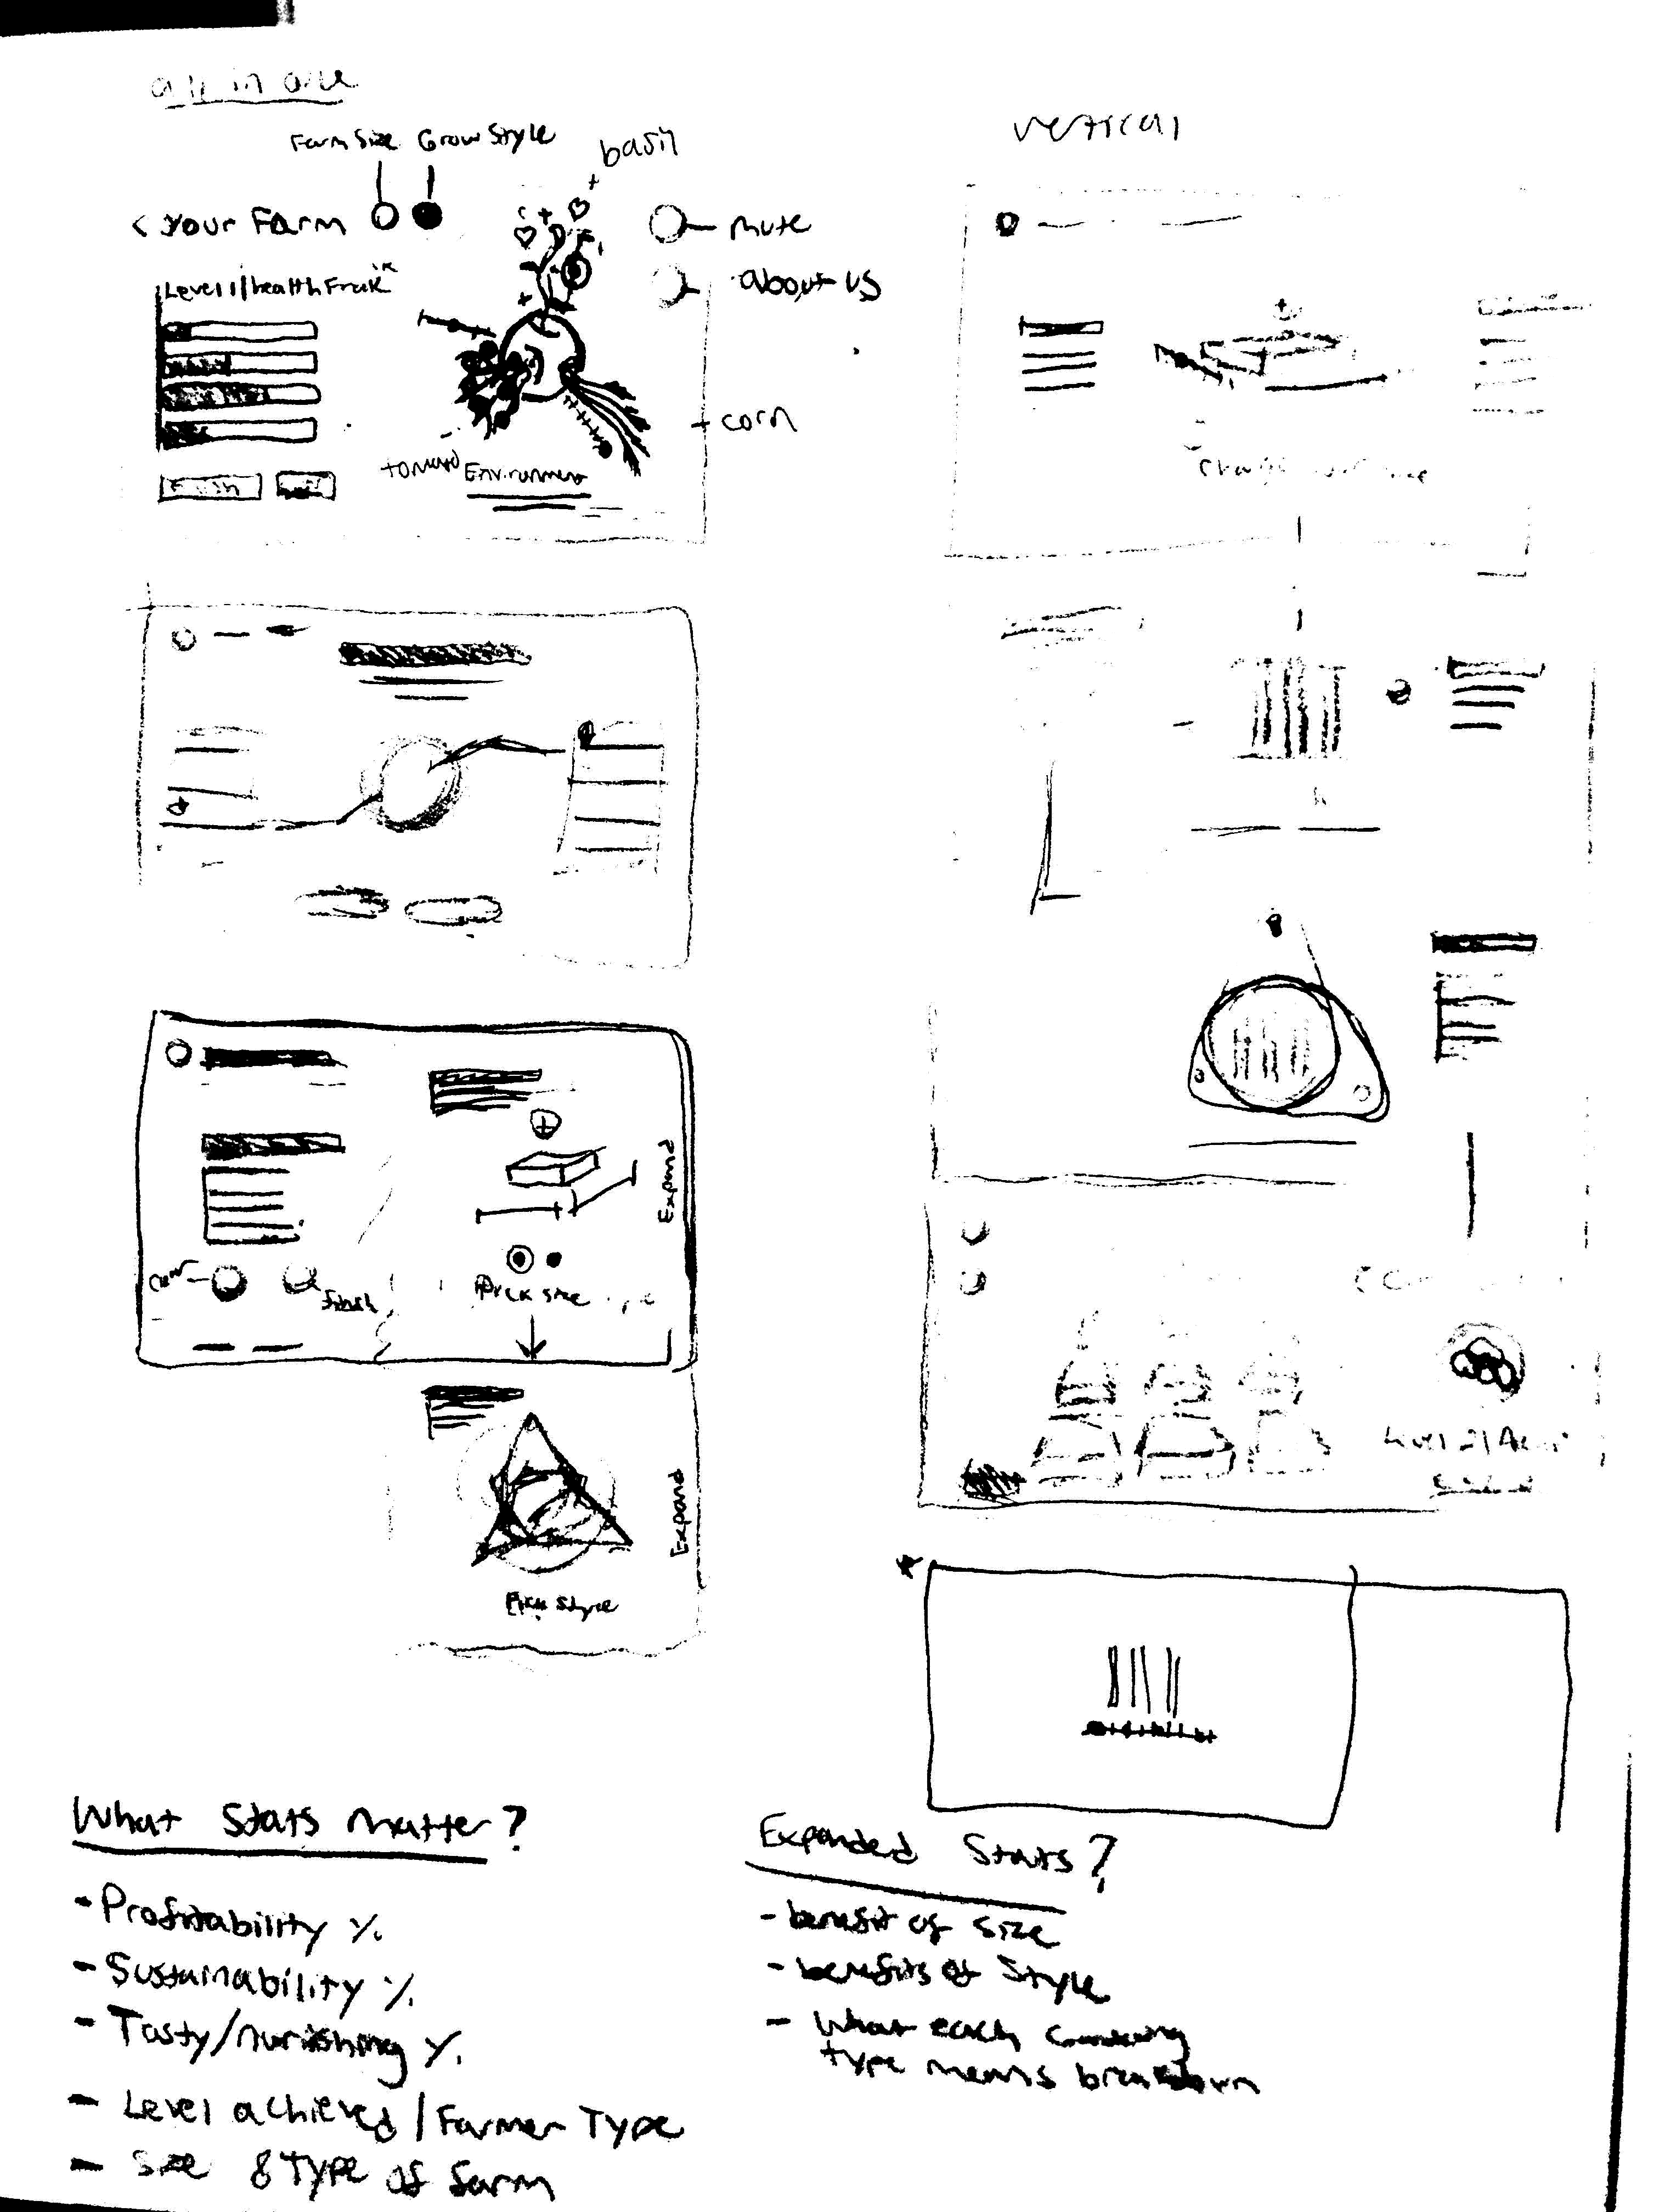 all in one
Farm Size Grow Style
basil
< Your Farm
mute
about us
Level 1/health Freak
corn
Environment
Finish
vertical
Expand
Pick size
Expand
Pick style
What Stats Matter?
- Profitability %
- Sustainability %
- Tasty/nurishing %
- Level achieved / Farmer Type
- Size & Type of farm
Expanded Stats?
- benefit of size
- benefits of Style
- What each
type means breakdown